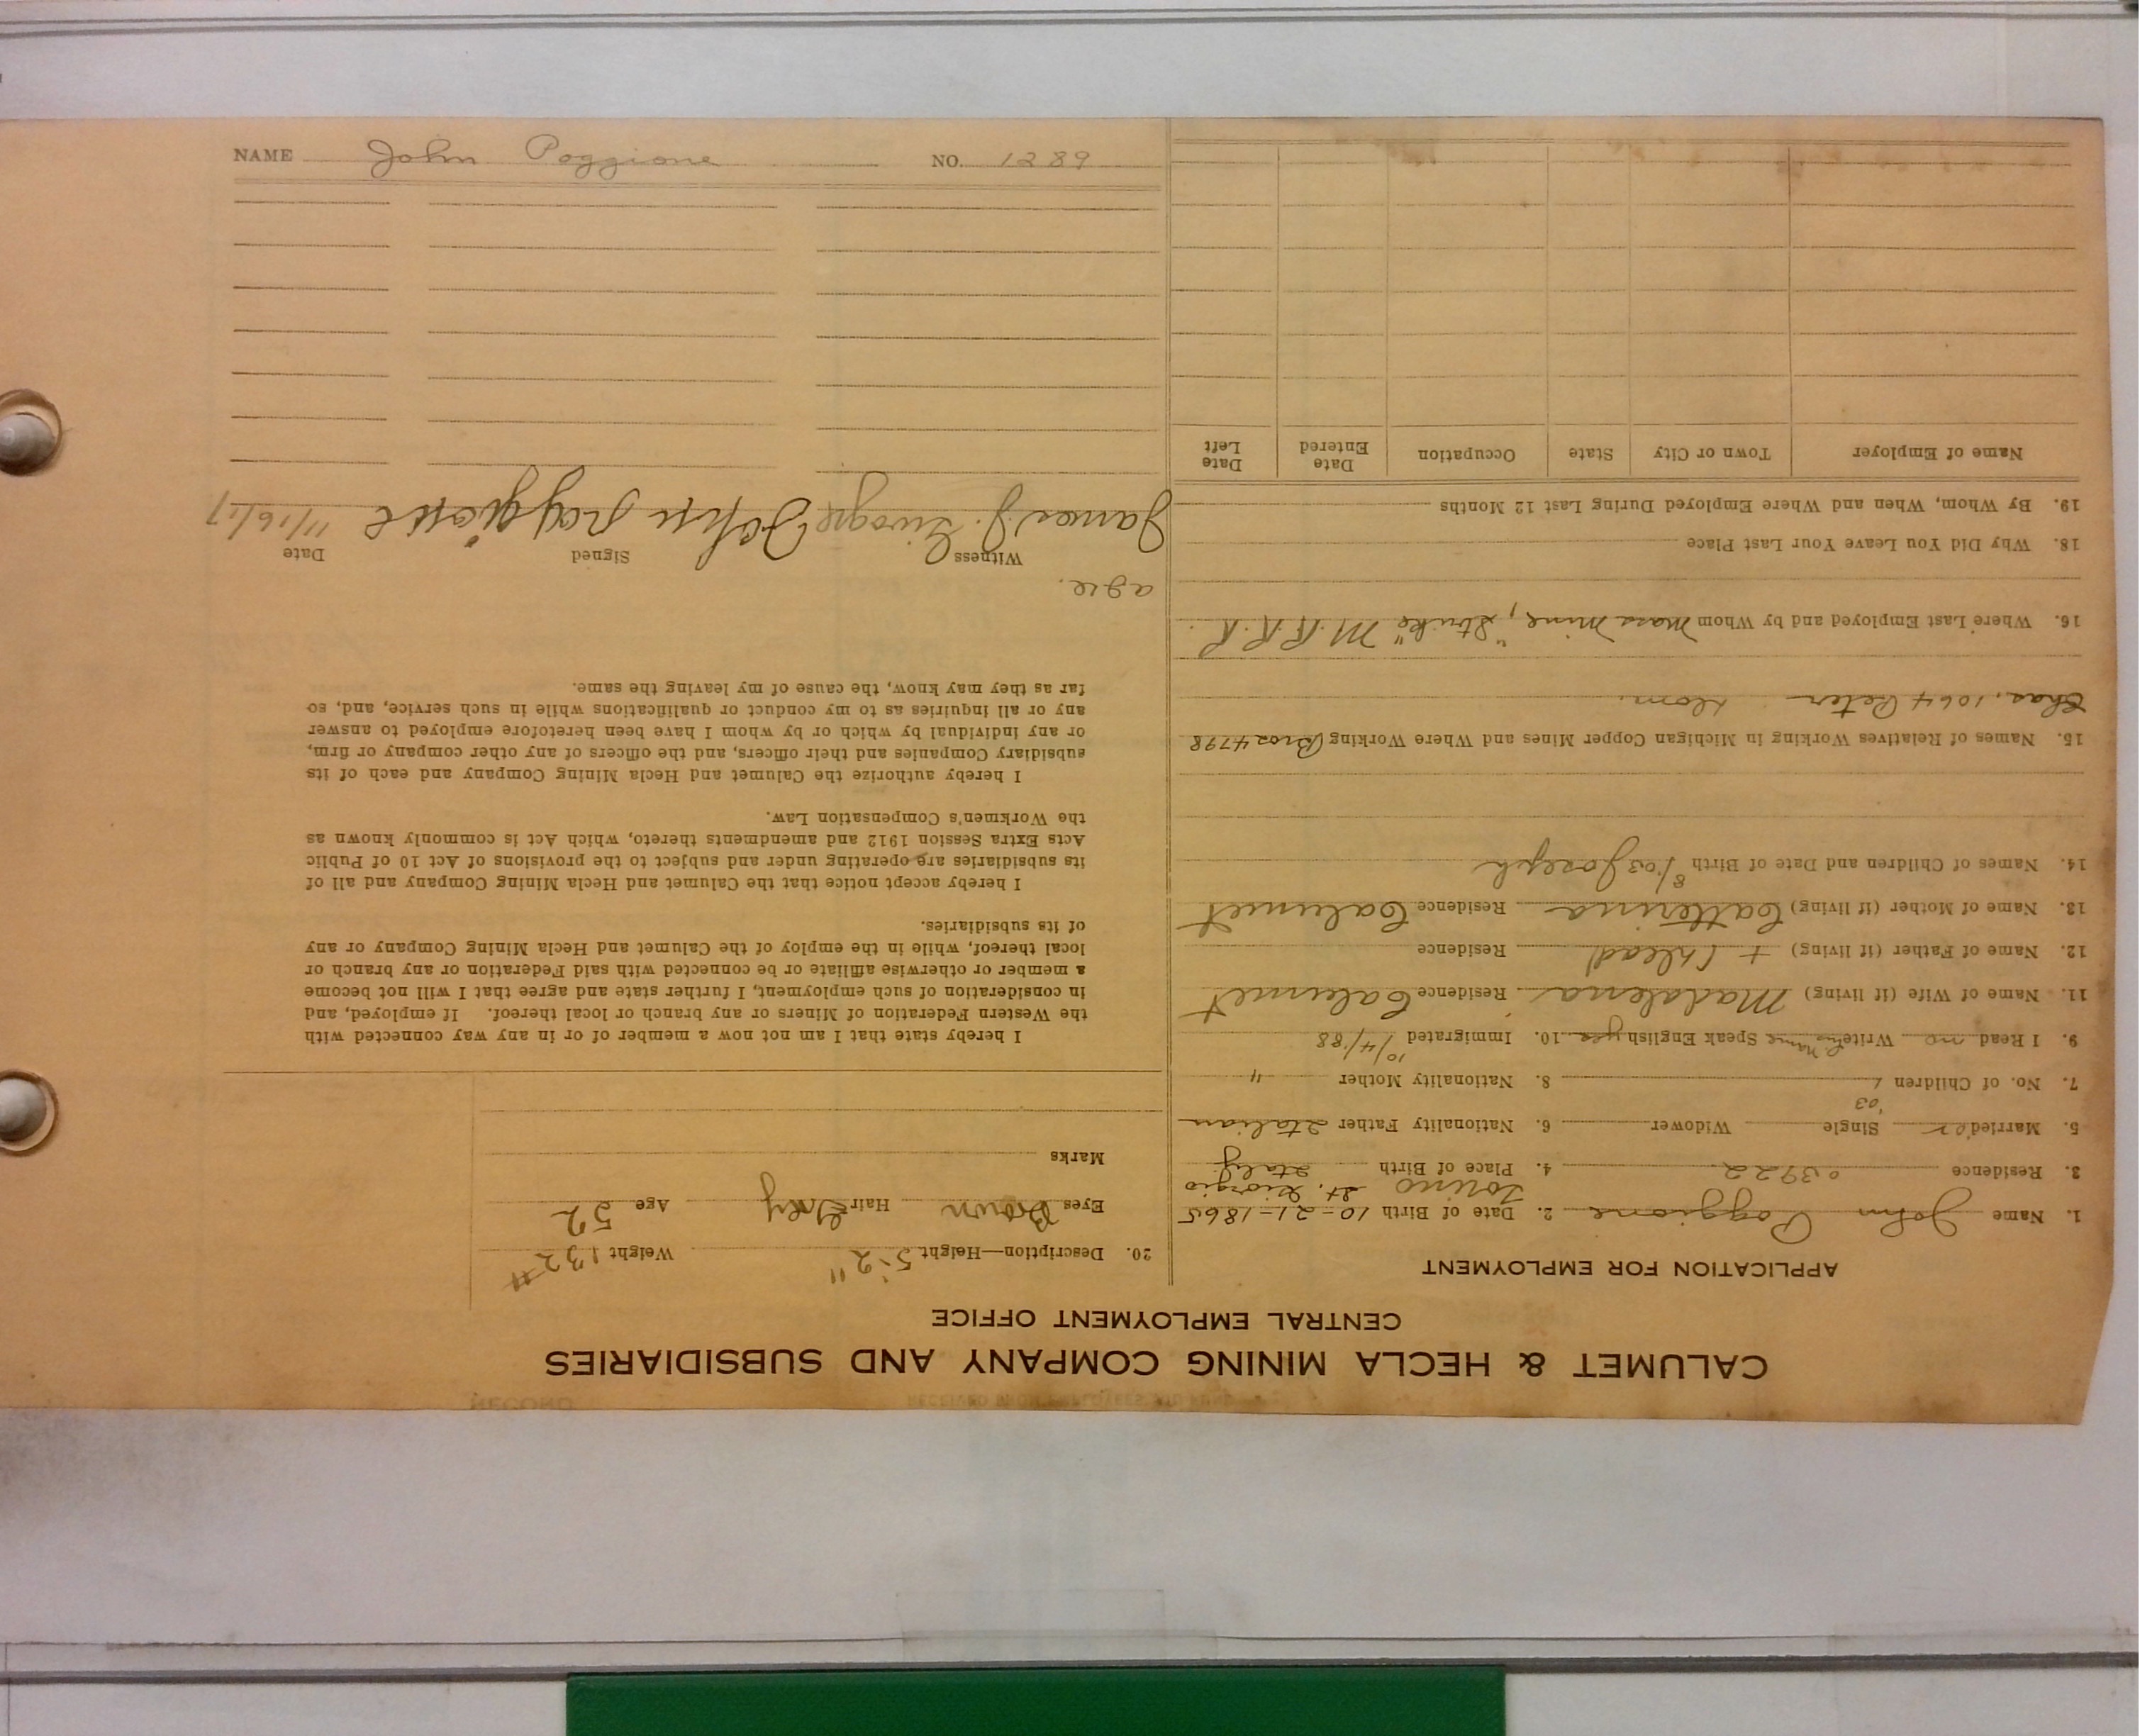 CALUMET & HECLA MINING COMPANY AND SUBSIDIARIES
CENTRAL EMPLOYMENT OFFICE
APPLICATION FOR EMPLOYMENT
1. Name John Poggione 2. Date of Birth 10-21-1865
Torino St. Giorgio
3. Residence 03922 4. Place of Birth Italy
5. Married Single Widower 6. Nationality Father Italian
'03
7. No. of Children 1 8. Nationality Mother "
9. I Read no Write name Speak English yes 10. Immigrated 10/4/88
11. Name of Wife (if living) Madalena Residence Calumet
12. Name of Father (if living) + (dead) Residence
13. Name of Mother (if living) Catterina Residence Calumet
14. Names of Children and Date of Birth 8/03 Joseph
15. Names of Relatives Working in Michigan Copper Mines and Where Working Bros 4798
Chas, 1064 Peter
16. Where Last Employed and by Whom Mass Mine, "Strike" M.R.R.R.
18. Why Did You Leave Your Last Place
19. By Whom, When and Where Employed During Last 12 Months
Name of Employer Town or City State Occupation Date Entered Date Left
20. Description—Height 5'-2" Weight 132#
Eyes Brown Hair Grey Age 52
Marks
I hereby state that I am not now a member of or in any way connected with
the Western Federation of Miners or any branch or local thereof. If employed, and
in consideration of such employment, I further state and agree that I will not become
a member or otherwise affiliate or be connected with said Federation or any branch or
local thereof, while in the employ of the Calumet and Hecla Mining Company or any
of its subsidiaries.
I hereby accept notice that the Calumet and Hecla Mining Company and all of
its subsidiaries are operating under and subject to the provisions of Act 10 of Public
Acts Extra Session 1912 and amendments thereto, which Act is commonly known as
the Workmen's Compensation Law.
I hereby authorize the Calumet and Hecla Mining Company and each of its
subsidiary Companies and their officers, and the officers of any other company or firm,
or any individual by which or by whom I have been heretofore employed to answer
any or all inquiries as to my conduct or qualifications while in such service, and, so
far as they may know, the cause of my leaving the same.
Witness Signed Date
James J. John 11/16/17
NAME John Poggione NO. 1289